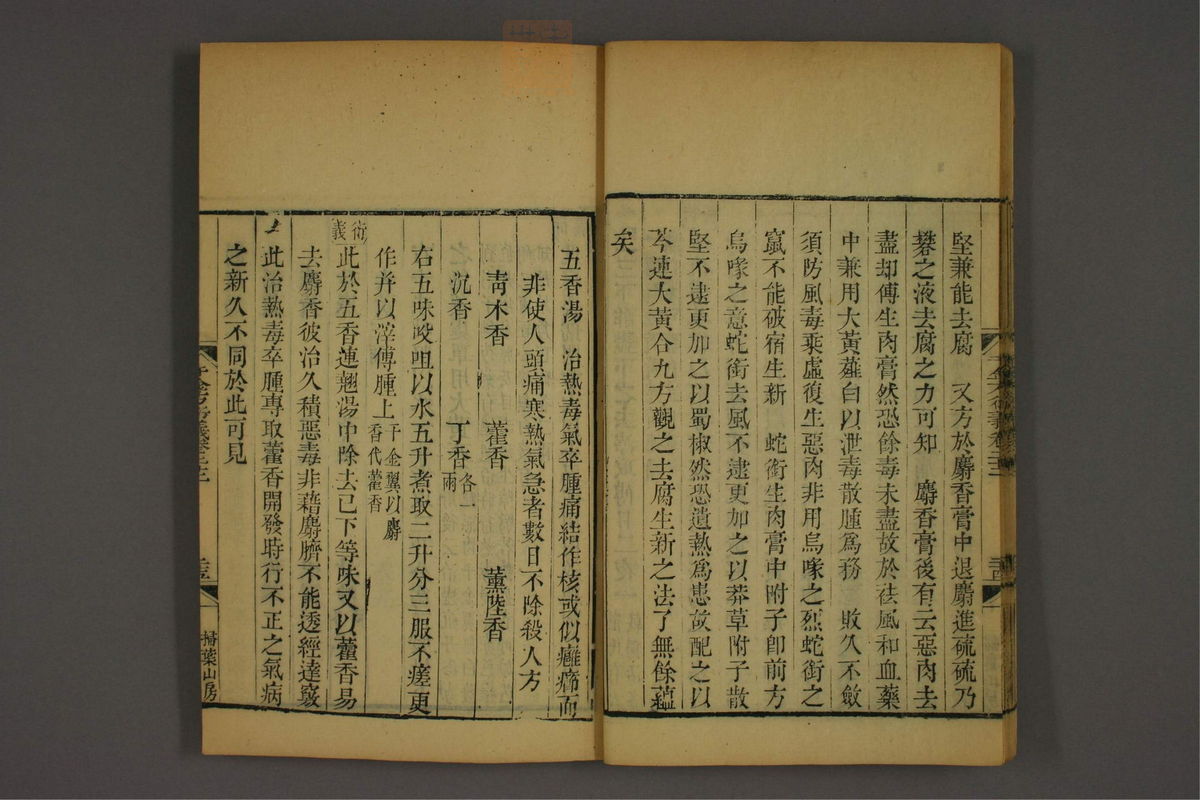 堅兼能去腐　又方於麝香膏中退麝進硫硫乃
礬之液去腐之力可知　麝香膏後有云惡肉去
盡却傅生肉膏然恐餘毒未盡故於祛風和血藥
中兼用大黃薤白以泄毒散腫爲務　敗久不斂
須防風毒乘虛復生惡肉非用烏喙之烈蛇銜之
竄不能破宿生新　蛇銜生肉膏中附子卽前方
烏喙之意蛇銜去風不逮更加之以莽草附子散
堅不逮更加之以蜀椒然恐遺熱爲患故配之以
芩連大黃合九方觀之去腐生新之法了無餘蘊
矣
五香湯　治熱毒氣卒腫痛結作核或似癰癤而
非使人頭痛寒熱氣急者數日不除殺人方
青木香　藿香　薰陸香
沉香　丁香各一兩
右五味㕮咀以水五升煮取二升分三服不瘥更
作并以滓傅腫上千金翼以麝香代藿香
衍義　此於五香連翹湯中除去已下等味又以藿香易
去麝香彼治久積惡毒非藉麝臍不能透經達竅
此治熱毒卒腫專取藿香開發時行不正之氣病
之新久不同於此可見
掃葉山房